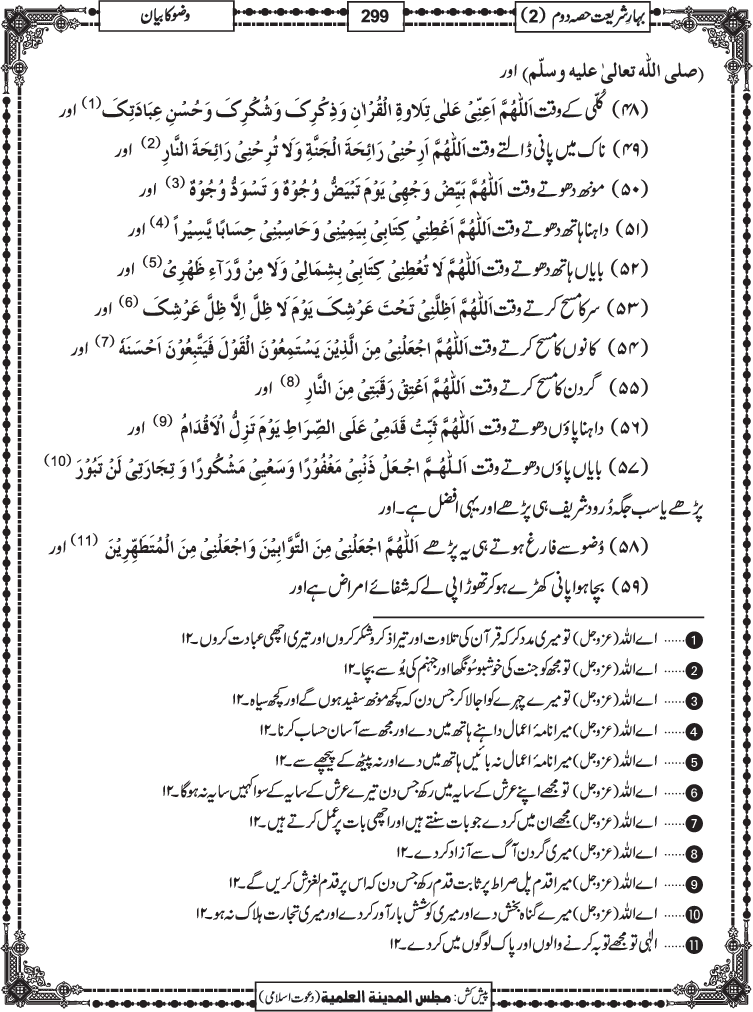 بہارِ شریعت حصہ دوم (2)
299
وضو کا بیان
(صلی اللہ تعالیٰ علیہ وسلّم) اور
(۴۸) کُلّی کے وقت اَللّٰھُمَّ اَعِنِّیْ عَلٰی تِلَاوَۃِ الْقُرْاٰنِ وَذِکْرِکَ وَشُکْرِکَ وَحُسْنِ عِبَادَتِکَ (1) اور
(۴۹) ناک میں پانی ڈالتے وقت اَللّٰھُمَّ اَرِحْنِیْ رَائِحَۃَ الْجَنَّۃِ وَلَا تُرِحْنِیْ رَائِحَۃَ النَّارِ (2) اور
(۵۰) مونھ دھوتے وقت اَللّٰھُمَّ بَیِّضْ وَجْھِیْ یَوْمَ تَبْیَضُّ وُجُوْہٌ وَ تَسْوَدُّ وُجُوْہٌ (3) اور
(۵۱) داہنا ہاتھ دھوتے وقت اَللّٰھُمَّ اَعْطِنِیْ کِتَابِیْ بِیَمِیْنِیْ وَحَاسِبْنِیْ حِسَابًا یَّسِیْراً (4) اور
(۵۲) بایاں ہاتھ دھوتے وقت اَللّٰھُمَّ لَا تُعْطِنِیْ کِتَابِیْ بِشِمَالِیْ وَلَا مِنْ وَّرَآءِ ظَھْرِیْ (5) اور
(۵۳) سر کا مسح کرتے وقت اَللّٰھُمَّ اَظِلَّنِیْ تَحْتَ عَرْشِکَ یَوْمَ لَا ظِلَّ اِلَّا ظِلَّ عَرْشِکَ (6) اور
(۵۴) کانوں کا مسح کرتے وقت اَللّٰھُمَّ اجْعَلْنِیْ مِنَ الَّذِیْنَ یَسْتَمِعُوْنَ الْقَوْلَ فَیَتَّبِعُوْنَ اَحْسَنَہٗ (7) اور
(۵۵) گردن کا مسح کرتے وقت اَللّٰھُمَّ اَعْتِقْ رَقَبَتِیْ مِنَ النَّارِ (8) اور
(۵۶) داہنا پاؤں دھوتے وقت اَللّٰھُمَّ ثَبِّتْ قَدَمِیْ عَلَی الصِّرَاطِ یَوْمَ تَزِلُّ الْاَقْدَامُ (9) اور
(۵۷) بایاں پاؤں دھوتے وقت اَللّٰھُمَّ اجْعَلْ ذَنْبِیْ مَغْفُوْرًا وَسَعْیِیْ مَشْکُوْرًا وَ تِجَارَتِیْ لَنْ تَبُوْرَ (10)
پڑھے یا سب جگہ دُرود شریف ہی پڑھے اور یہی افضل ہے۔ اور
(۵۸) وُضو سے فارغ ہوتے ہی یہ پڑھے اَللّٰھُمَّ اجْعَلْنِیْ مِنَ التَّوَّابِیْنَ وَاجْعَلْنِیْ مِنَ الْمُتَطَھِّرِیْنَ (11) اور
(۵۹) بچا ہوا پانی کھڑے ہو کر تھوڑا پی لے کہ شفائے امراض ہے اور
1 ...... اے اللہ (عزوجل) تو میری مدد کر کہ قرآن کی تلاوت اور تیرا ذکر و شکر کروں اور تیری اچھی عبادت کروں۔۱۲
2 ...... اے اللہ (عزوجل) تو مجھ کو جنت کی خوشبو سُونگھا اور جہنم کی بُو سے بچا۔۱۲
3 ...... اے اللہ (عزوجل) تو میرے چہرے کو اجالا کر جس دن کہ کچھ مونھ سفید ہوں گے اور کچھ سیاہ۔۱۲
4 ...... اے اللہ (عزوجل) میرا نامۂ اعمال داہنے ہاتھ میں دے اور مجھ سے آسان حساب کرنا۔۱۲
5 ...... اے اللہ (عزوجل) میرا نامۂ اعمال نہ بائیں ہاتھ میں دے اور نہ پیٹھ کے پیچھے سے۔۱۲
6 ...... اے اللہ (عزوجل) تو مجھے اپنے عرش کے سایہ میں رکھ جس دن تیرے عرش کے سایہ کے سوا کہیں سایہ نہ ہوگا۔۱۲
7 ...... اے اللہ (عزوجل) مجھے ان میں کر دے جو بات سنتے ہیں اور اچھی بات پر عمل کرتے ہیں۔۱۲
8 ...... اے اللہ (عزوجل) میری گردن آگ سے آزاد کر دے۔۱۲
9 ...... اے اللہ (عزوجل) میرا قدم پل صراط پر ثابت قدم رکھ جس دن کہ اس پر قدم لغزش کریں گے۔۱۲
10 ...... اے اللہ (عزوجل) میرے گناہ بخش دے اور میری کوشش بار آور کر دے اور میری تجارت ہلاک نہ ہو۔۱۲
11 ...... الٰہی تو مجھے توبہ کرنے والوں اور پاک لوگوں میں کر دے۔۱۲
پیش کش: مجلس المدینة العلمیة (دعوت اسلامی)